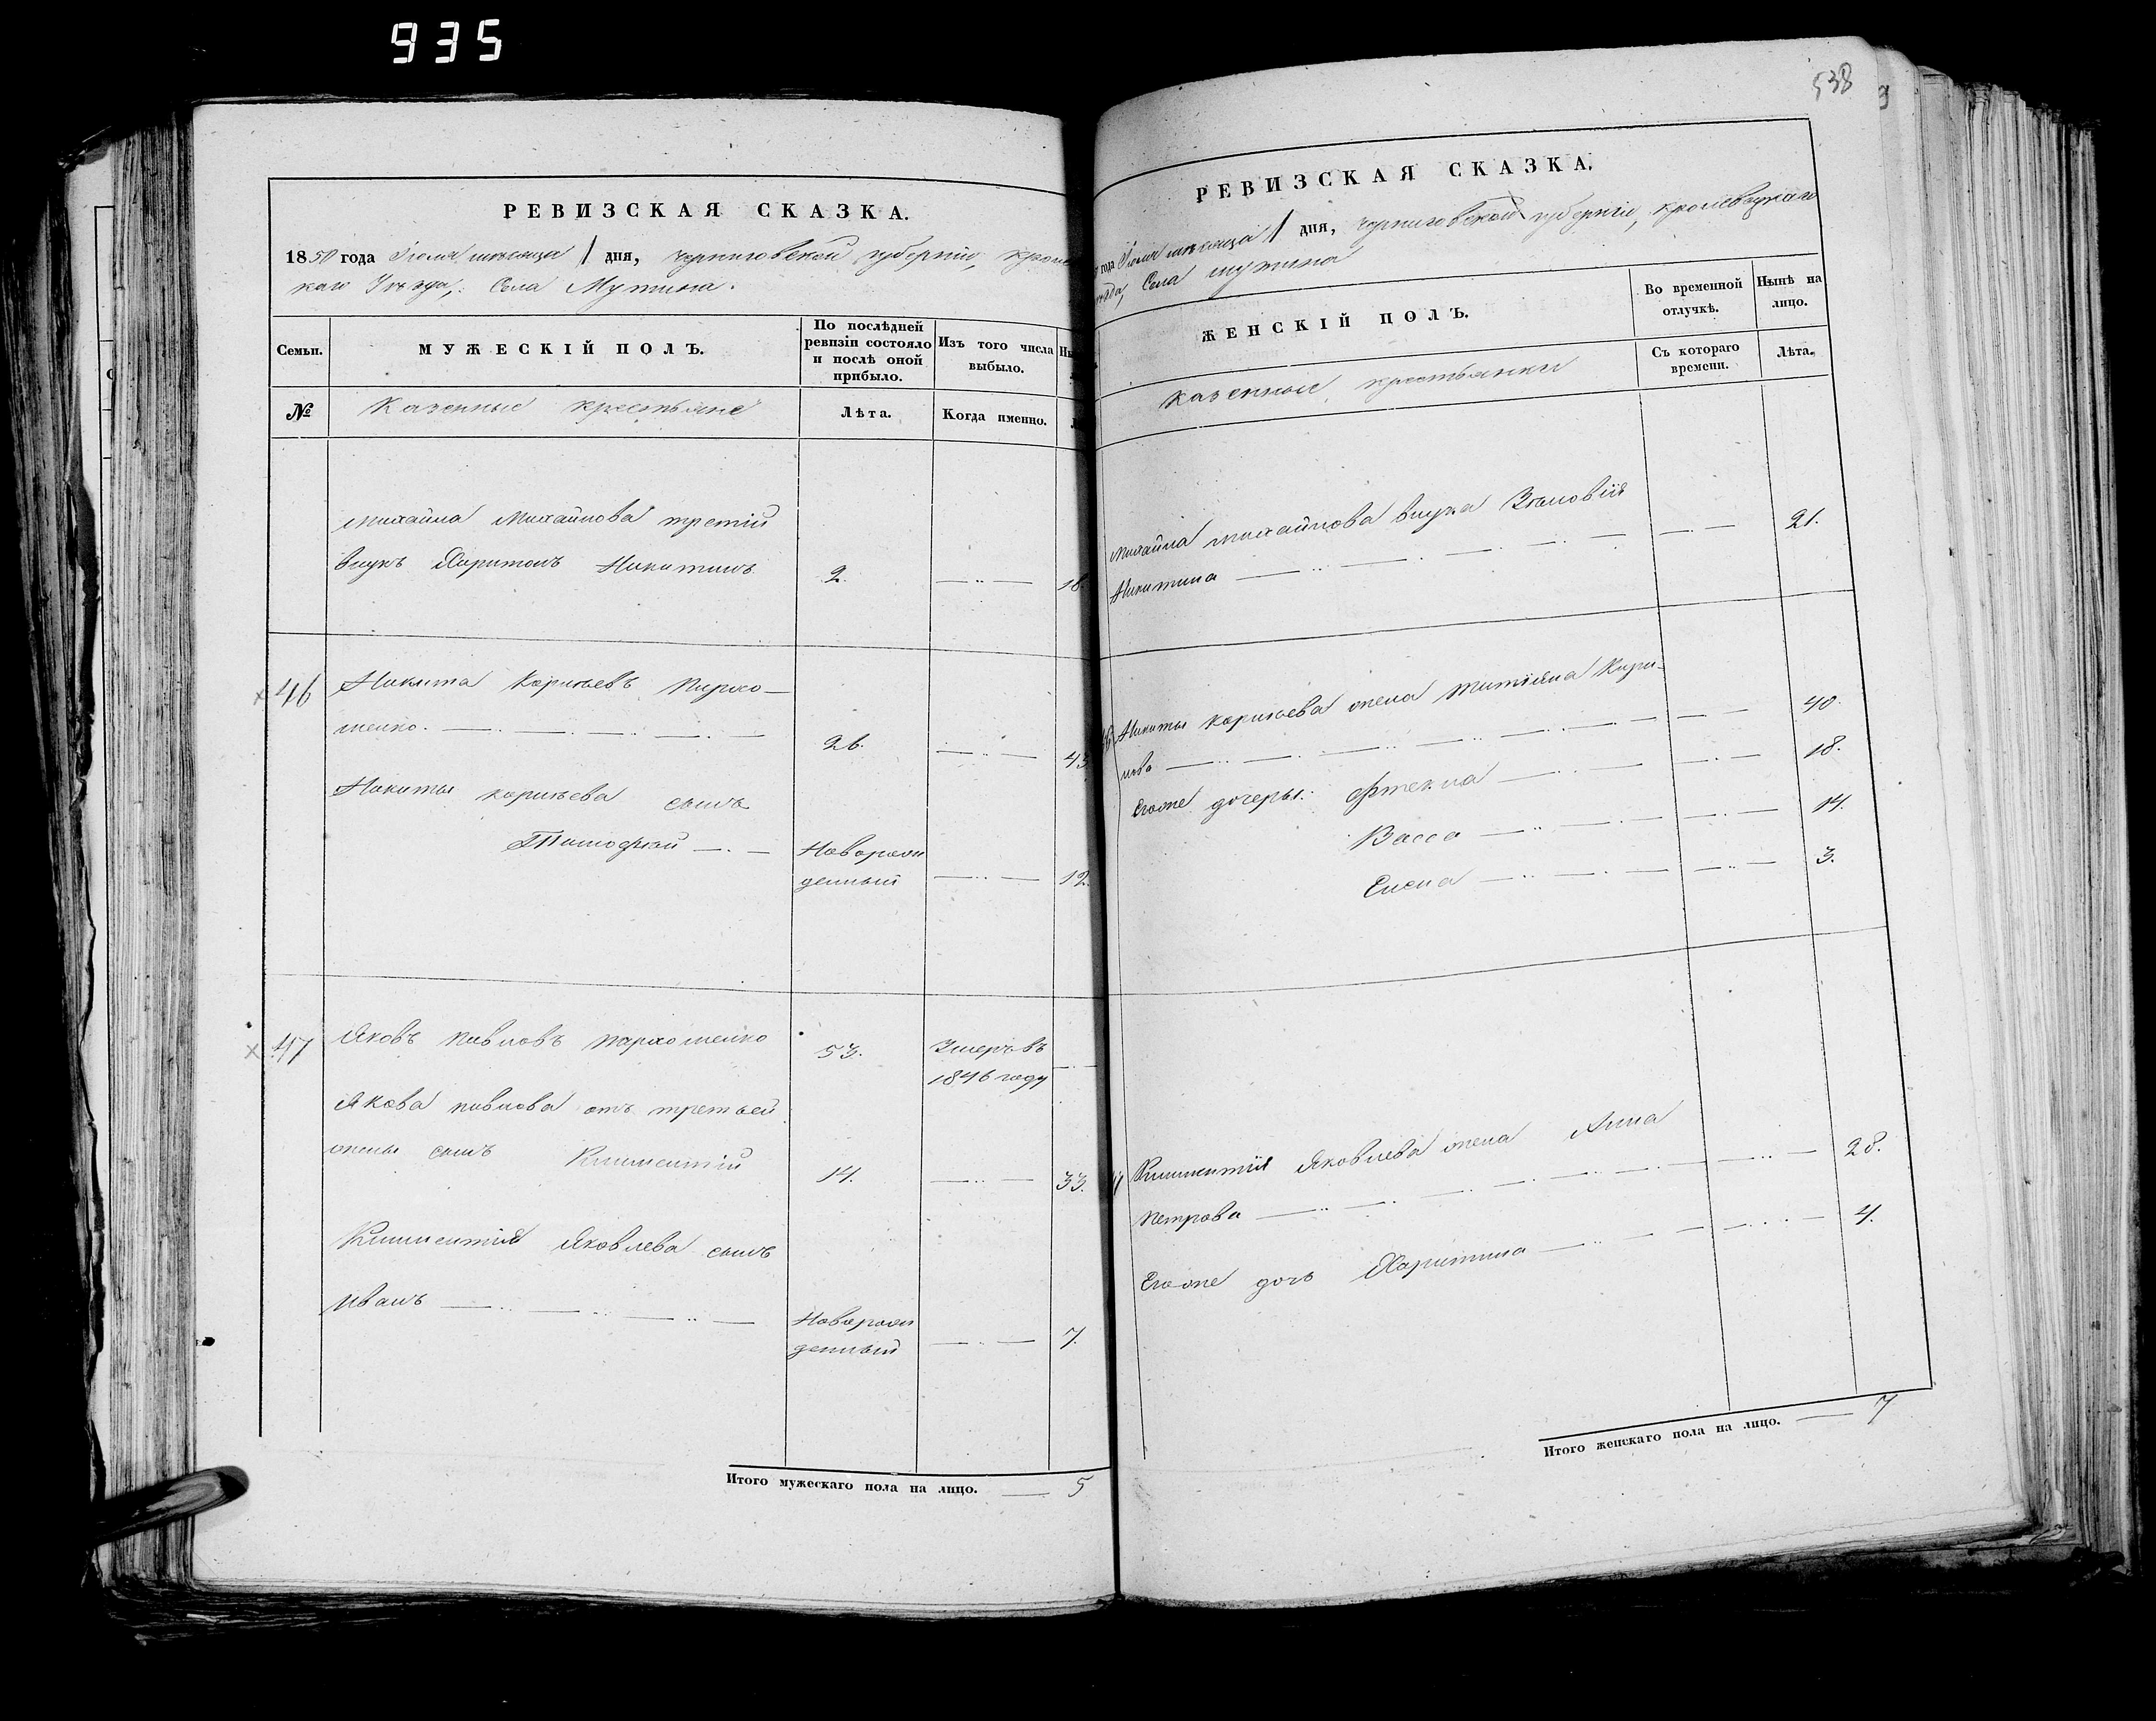 935
РЕВИЗСКАЯ СКАЗКА.
1850 года Іюля мѣсяца 1 дня, Черниговской губерніи, Кроле
каго Уѣзда, Села Мутина.
Семьи.
МУЖЕСКІЙ ПОЛЪ.
По послѣдней
ревизіи состояло
и послѣ оной
прибыло.
Изъ того числа
выбыло.
№
Казенные крестьяне
Лѣта.
Когда именно.
Михайла Михайлова третій
внукъ Харитонъ Никитинъ 2. 18.
46 Никита Корнѣевъ Пархо-
менко. 26. 43
Никиты Корнѣева сынъ
Тимофѣй Новорож
денный 12.
47 Яковъ Павловъ Пархоменко 53. Умеръ въ
1846 году
Якова Павлова отъ третьей
жены сынъ Климентій 14. 33.
Климентія Яковлева сынъ
Иванъ Новорож
денный 7.
Итого мужескаго пола на лицо. 5
538
РЕВИЗСКАЯ СКАЗКА.
года Іюля мѣсяца 1 дня, Черниговской губерніи, Кролевецкаго
уѣзда, Села Мутина
ЖЕНСКІЙ ПОЛЪ.
Во временной
отлучкѣ.
Нынѣ на
лицо.
Съ котораго
времени.
Лѣта.
Казенные крестьянки
Михайла Михайлова внука Зѣновія
Никитина 21.
Никиты Корнѣева жена Титіяна Кири-
лова 40.
Егоже дочеры: Фтекла 18.
Васса 14.
Елена 3.
Климентія Яковлева жена Анна
Петрова 28.
Егоже дочь Харитина 4.
Итого женскаго пола на лицо. 7